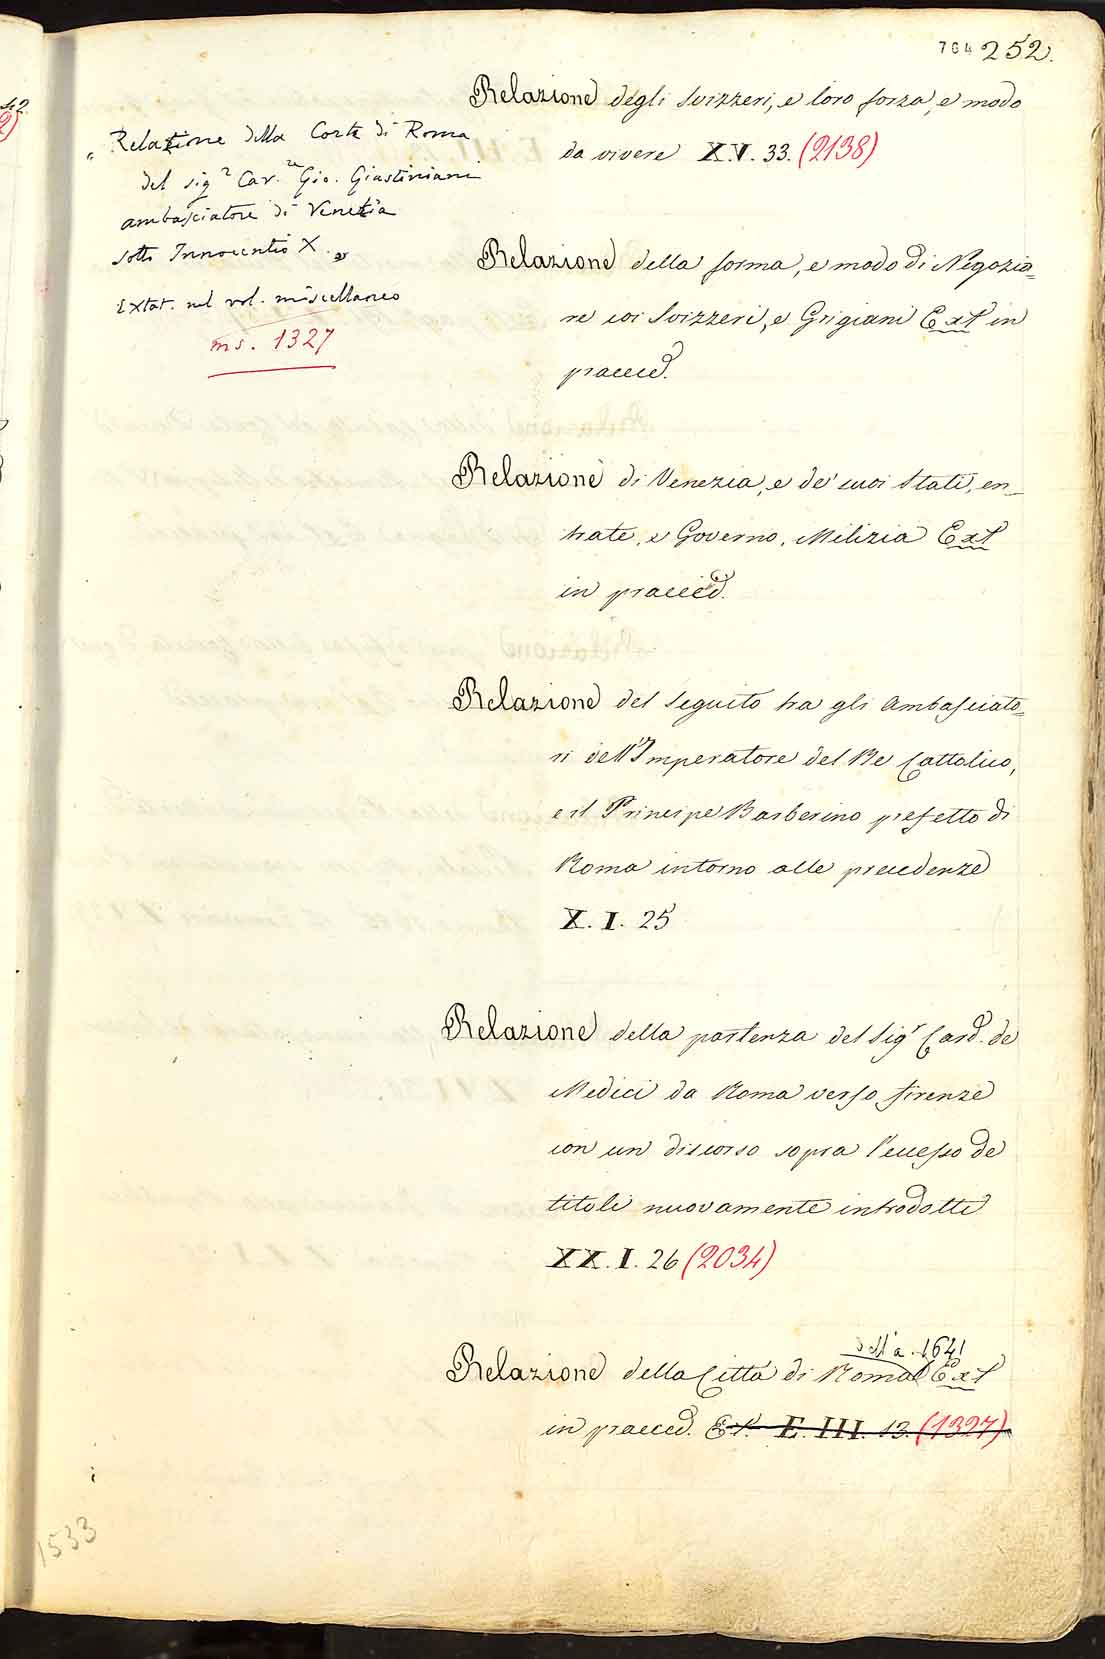 764 252.
Relazione degli Svizzeri, e loro forza, e modo
da vivere X.V. 33. (2138)
„ Relazione della Corte di Roma
del sig.r Cav.re Gio. Giustiniani
ambasciatore di Venezia
sotto Innocentio X. „
Extat. nel vol. miscellaneo
ms. 1327
Relazione della forma, e modo di Negozia=
re coi Svizzeri, e Grigiani Ext in
praeced.
Relazione di Venezia, e de' suoi Stati, en=
trate, e Governo, Milizia Ext
in praeced.
Relazione del seguito tra gli Ambasciato=
ri dell'Imperatore del Re Cattolico,
e il Principe Barberino prefetto di
Roma intorno alle precedenze
X. I. 25
Relazione della partenza del Sig.r Card. de
Medici da Roma verso Firenze
con un discorso sopra l'ecesso de
titoli nuovamente introdotti
XX. I. 26 (2034)
dell'a. 1641
Relazione della Città di Roma Ext
in praeced. Et. E. III. 13. (1327)
1533